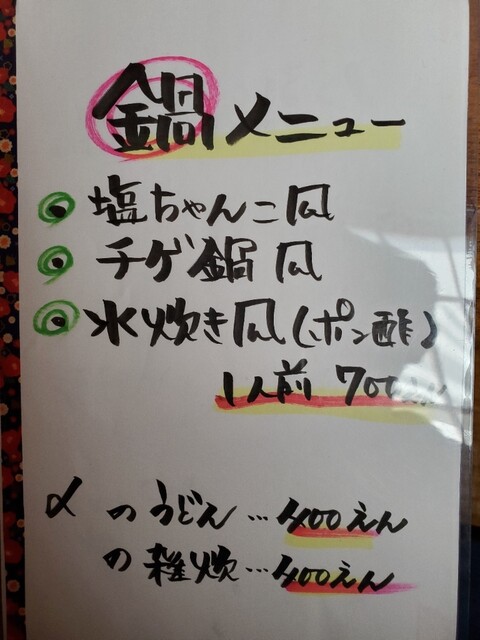 鍋メニュー
塩ちゃんこ風
チゲ鍋風
水炊き風(ポン酢)
1人前 700えん
〆のうどん…400えん
の雑炊…400えん